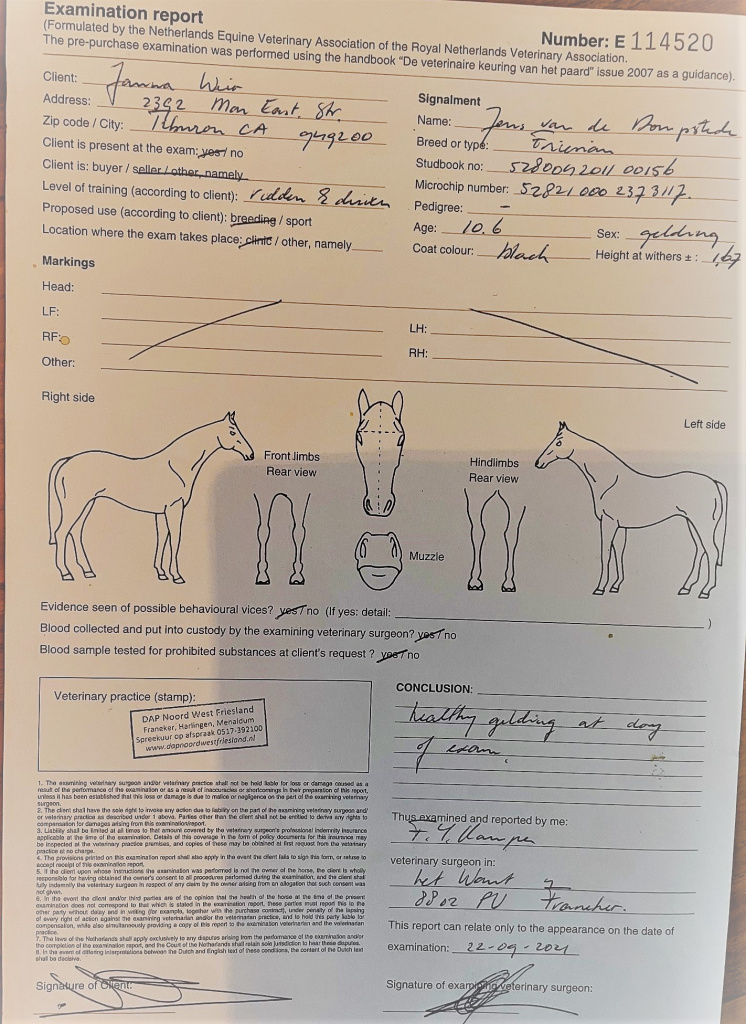 Examination report
(Formulated by the Netherlands Equine Veterinary Association of the Royal Netherlands Veterinary Association.
Number: E 114520
The pre-purchase examination was performed using the handbook "De veterinaire keuring van het paard" issue 2007 as a guidance).
Client:
Address: 2392 Mar East. Str.
Zip code / City: Tiburon CA 949200
Client is present at the exam: yes / no
Client is: buyer / seller / other, namely
Level of training (according to client): ridden & driven
Proposed use (according to client): breeding / sport
Location where the exam takes place: clinic / other, namely
Signalment
Name: Jens van de
Breed or type: Friesian
Studbook no: 528004 2011 00156
Microchip number: 52821 000 2373117.
Pedigree: -
Age: 10.6 Sex: gelding
Coat colour: black Height at withers ± : 1,67
Markings
Head:
LF:
RF:
Other:
LH:
RH:
Right side
Left side
Front limbs
Rear view
Hindlimbs
Rear view
Muzzle
Evidence seen of possible behavioural vices? yes / no (If yes: detail: )
Blood collected and put into custody by the examining veterinary surgeon? yes / no
Blood sample tested for prohibited substances at client's request ? yes / no
Veterinary practice (stamp):
DAP Noord West Friesland
Franeker, Harlingen, Menaldum
Spreekuur op afspraak 0517-392100
www.dapnoordwestfriesland.nl
CONCLUSION:
healthy gelding at day
of exam.
1. The examining veterinary surgeon and/or veterinary practice shall not be held liable for loss or damage caused as a
result of the performance of the examination or as a result of inaccuracies or shortcomings in their preparation of this report,
unless it has been established that this loss or damage is due to malice or negligence on the part of the examining veterinary
surgeon.
2. The client shall have the sole right to invoke any action due to liability on the part of the examining veterinary surgeon and/
or veterinary practice as described under 1 above. Parties other than the client shall not be entitled to derive any rights to
compensation for damages arising from this examination/report.
3. Liability shall be limited at all times to that amount covered by the veterinary surgeon's professional indemnity insurance
applicable at the time of the examination. Details of this coverage in the form of policy documents for this insurance may
be inspected at the veterinary practice premises, and copies of these may be obtained at first request from the veterinary
practice at no charge.
4. The provisions printed on this examination report shall also apply in the event the client fails to sign this form, or refuse to
accept receipt of this examination report.
5. If the client upon whose instructions the examination was performed is not the owner of the horse, the client is wholly
responsible for having obtained the owner's consent to all procedures performed during the examination, and the client shall
fully indemnify the veterinary surgeon in respect of any claim by the owner arising from an allegation that such consent was
not given.
6. In the event the client and/or third parties are of the opinion that the health of the horse at the time of the present
examination does not correspond to that which is stated in the examination report, these parties must report this to the
other party without delay and in writing (for example, together with the purchase contract), under penalty of the lapsing
of every right of action against the examining veterinarian and/or the veterinary practice, and to hold this party liable for
compensation, while also simultaneously providing a copy of this report to the examination veterinarian and the veterinary
practice.
7. The laws of the Netherlands shall apply exclusively to any disputes arising from the performance of the examination and/or
the completion of the examination report, and the Court of the Netherlands shall retain sole jurisdiction to hear these disputes.
8. In the event of differing interpretations between the Dutch and English text of these conditions, the content of the Dutch text
shall be decisive.
Thus examined and reported by me:
veterinary surgeon in:
het Want 7
8802 PV Franeker.
This report can relate only to the appearance on the date of
examination: 22-09-2021
Signature of Client:
Signature of examining veterinary surgeon: